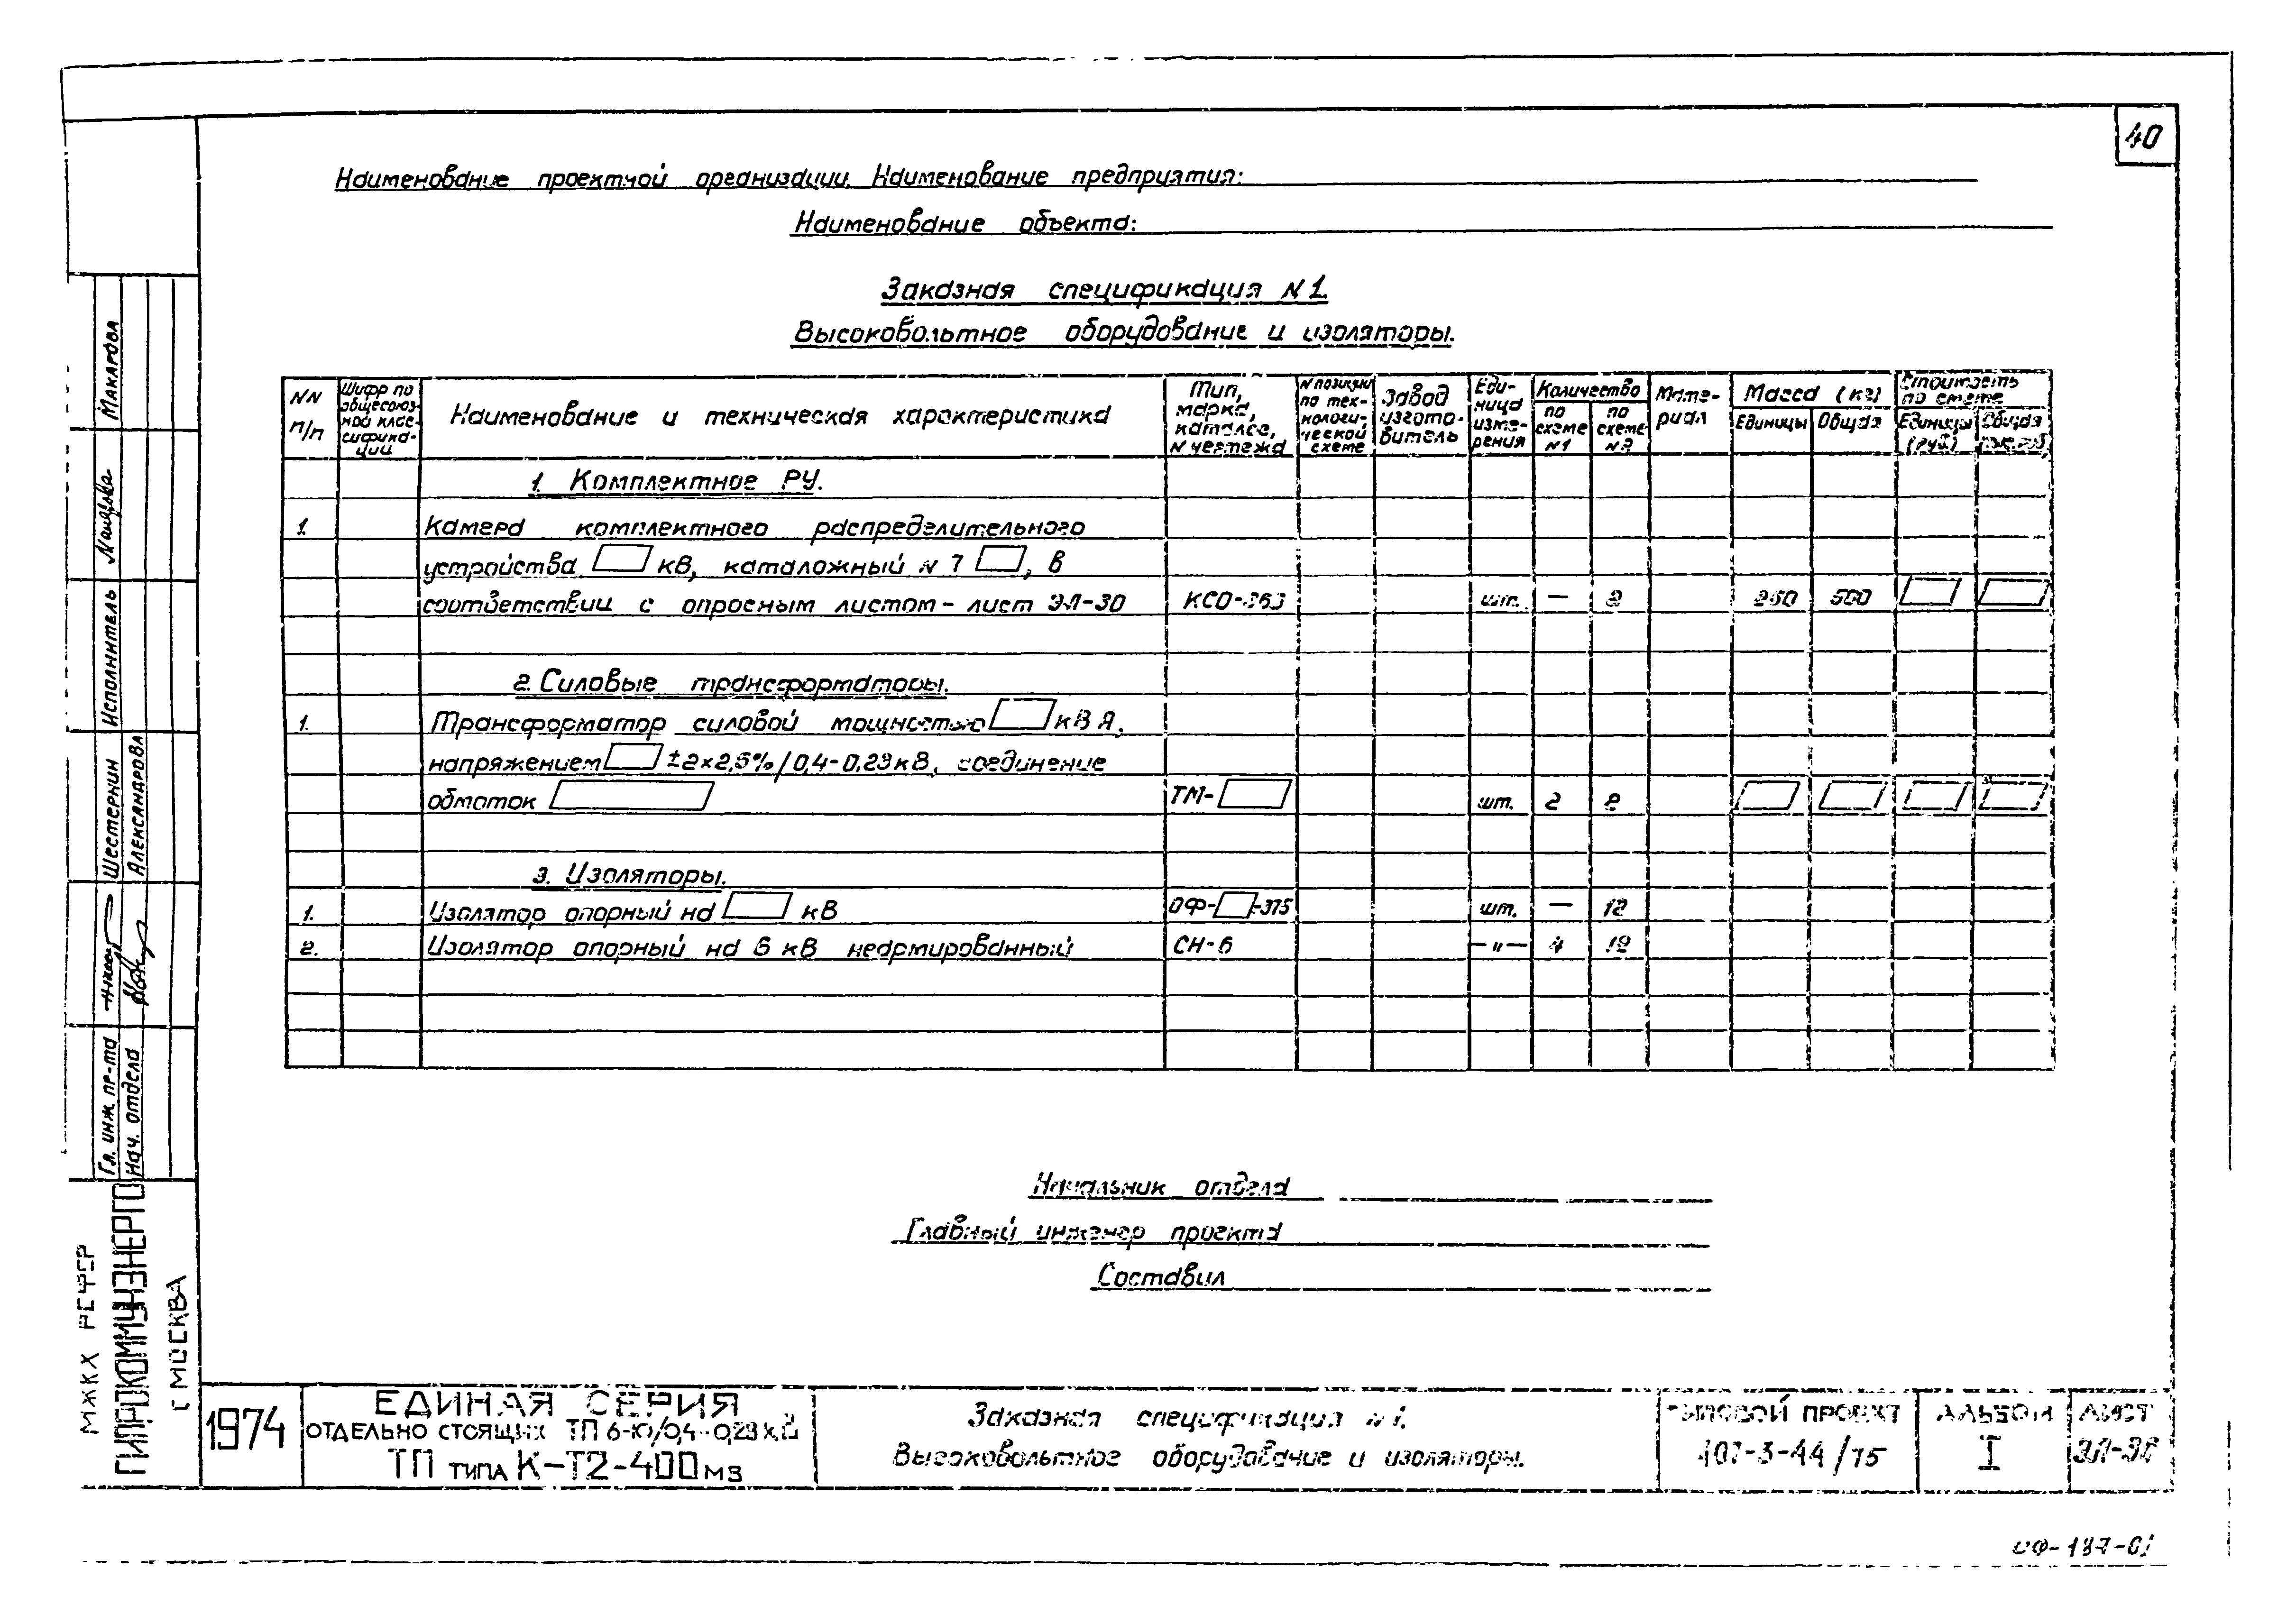 40
Наименование проектной организации. Наименование предприятия:
Наименование объекта:
Заказная спецификация N 1.
Высоковольтное оборудование и изоляторы.
NN п/п
Шифр по общесоюзной классификации
Наименование и техническая характеристика
Тип, марка, каталог, N чертежа
N позиции по технологической схеме
Завод изготовитель
Единица измерения
Количество
по схеме N1
по схеме N2
Материал
Масса (кг)
Единицы
Общая
Стоимость по смете
Единицы (руб)
Общая
1. Комплектное РУ.
1. Камера комплектного распределительного
устройства кВ, каталожный N 7 , в
соответствии с опросным листом – лист ЭЛ-30 КСО- шт. — 2 250 500
2. Силовые трансформаторы.
1. Трансформатор силовой мощностью кВА,
напряжением ±2×2,5%/0,4-0,23кВ, соединение
обмоток ТМ- шт. 2 2
3. Изоляторы.
1. Изолятор опорный на кВ ОФ- -375 шт. — 12
2. Изолятор опорный на 6 кВ неармированный СН-6 —"— 4 12
Начальник отдела
Главный инженер проекта
Составил
МЖКХ РСФСР
ГИПРОКОММУНЭНЕРГО
Г МОСКВА
Гл. инж. пр-та Шестернин Исполнитель Макарова
Нач. отдела Александрова
1974
ЕДИНАЯ СЕРИЯ
ОТДЕЛЬНО СТОЯЩИХ ТП 6-10/0,4-0,23 кВ
ТП ТИПА К-Т2-400 М3
Заказная спецификация N 1.
Высоковольтное оборудование и изоляторы.
ТИПОВОЙ ПРОЕКТ
407-3-44/75
АЛЬБОМ
I
ЛИСТ